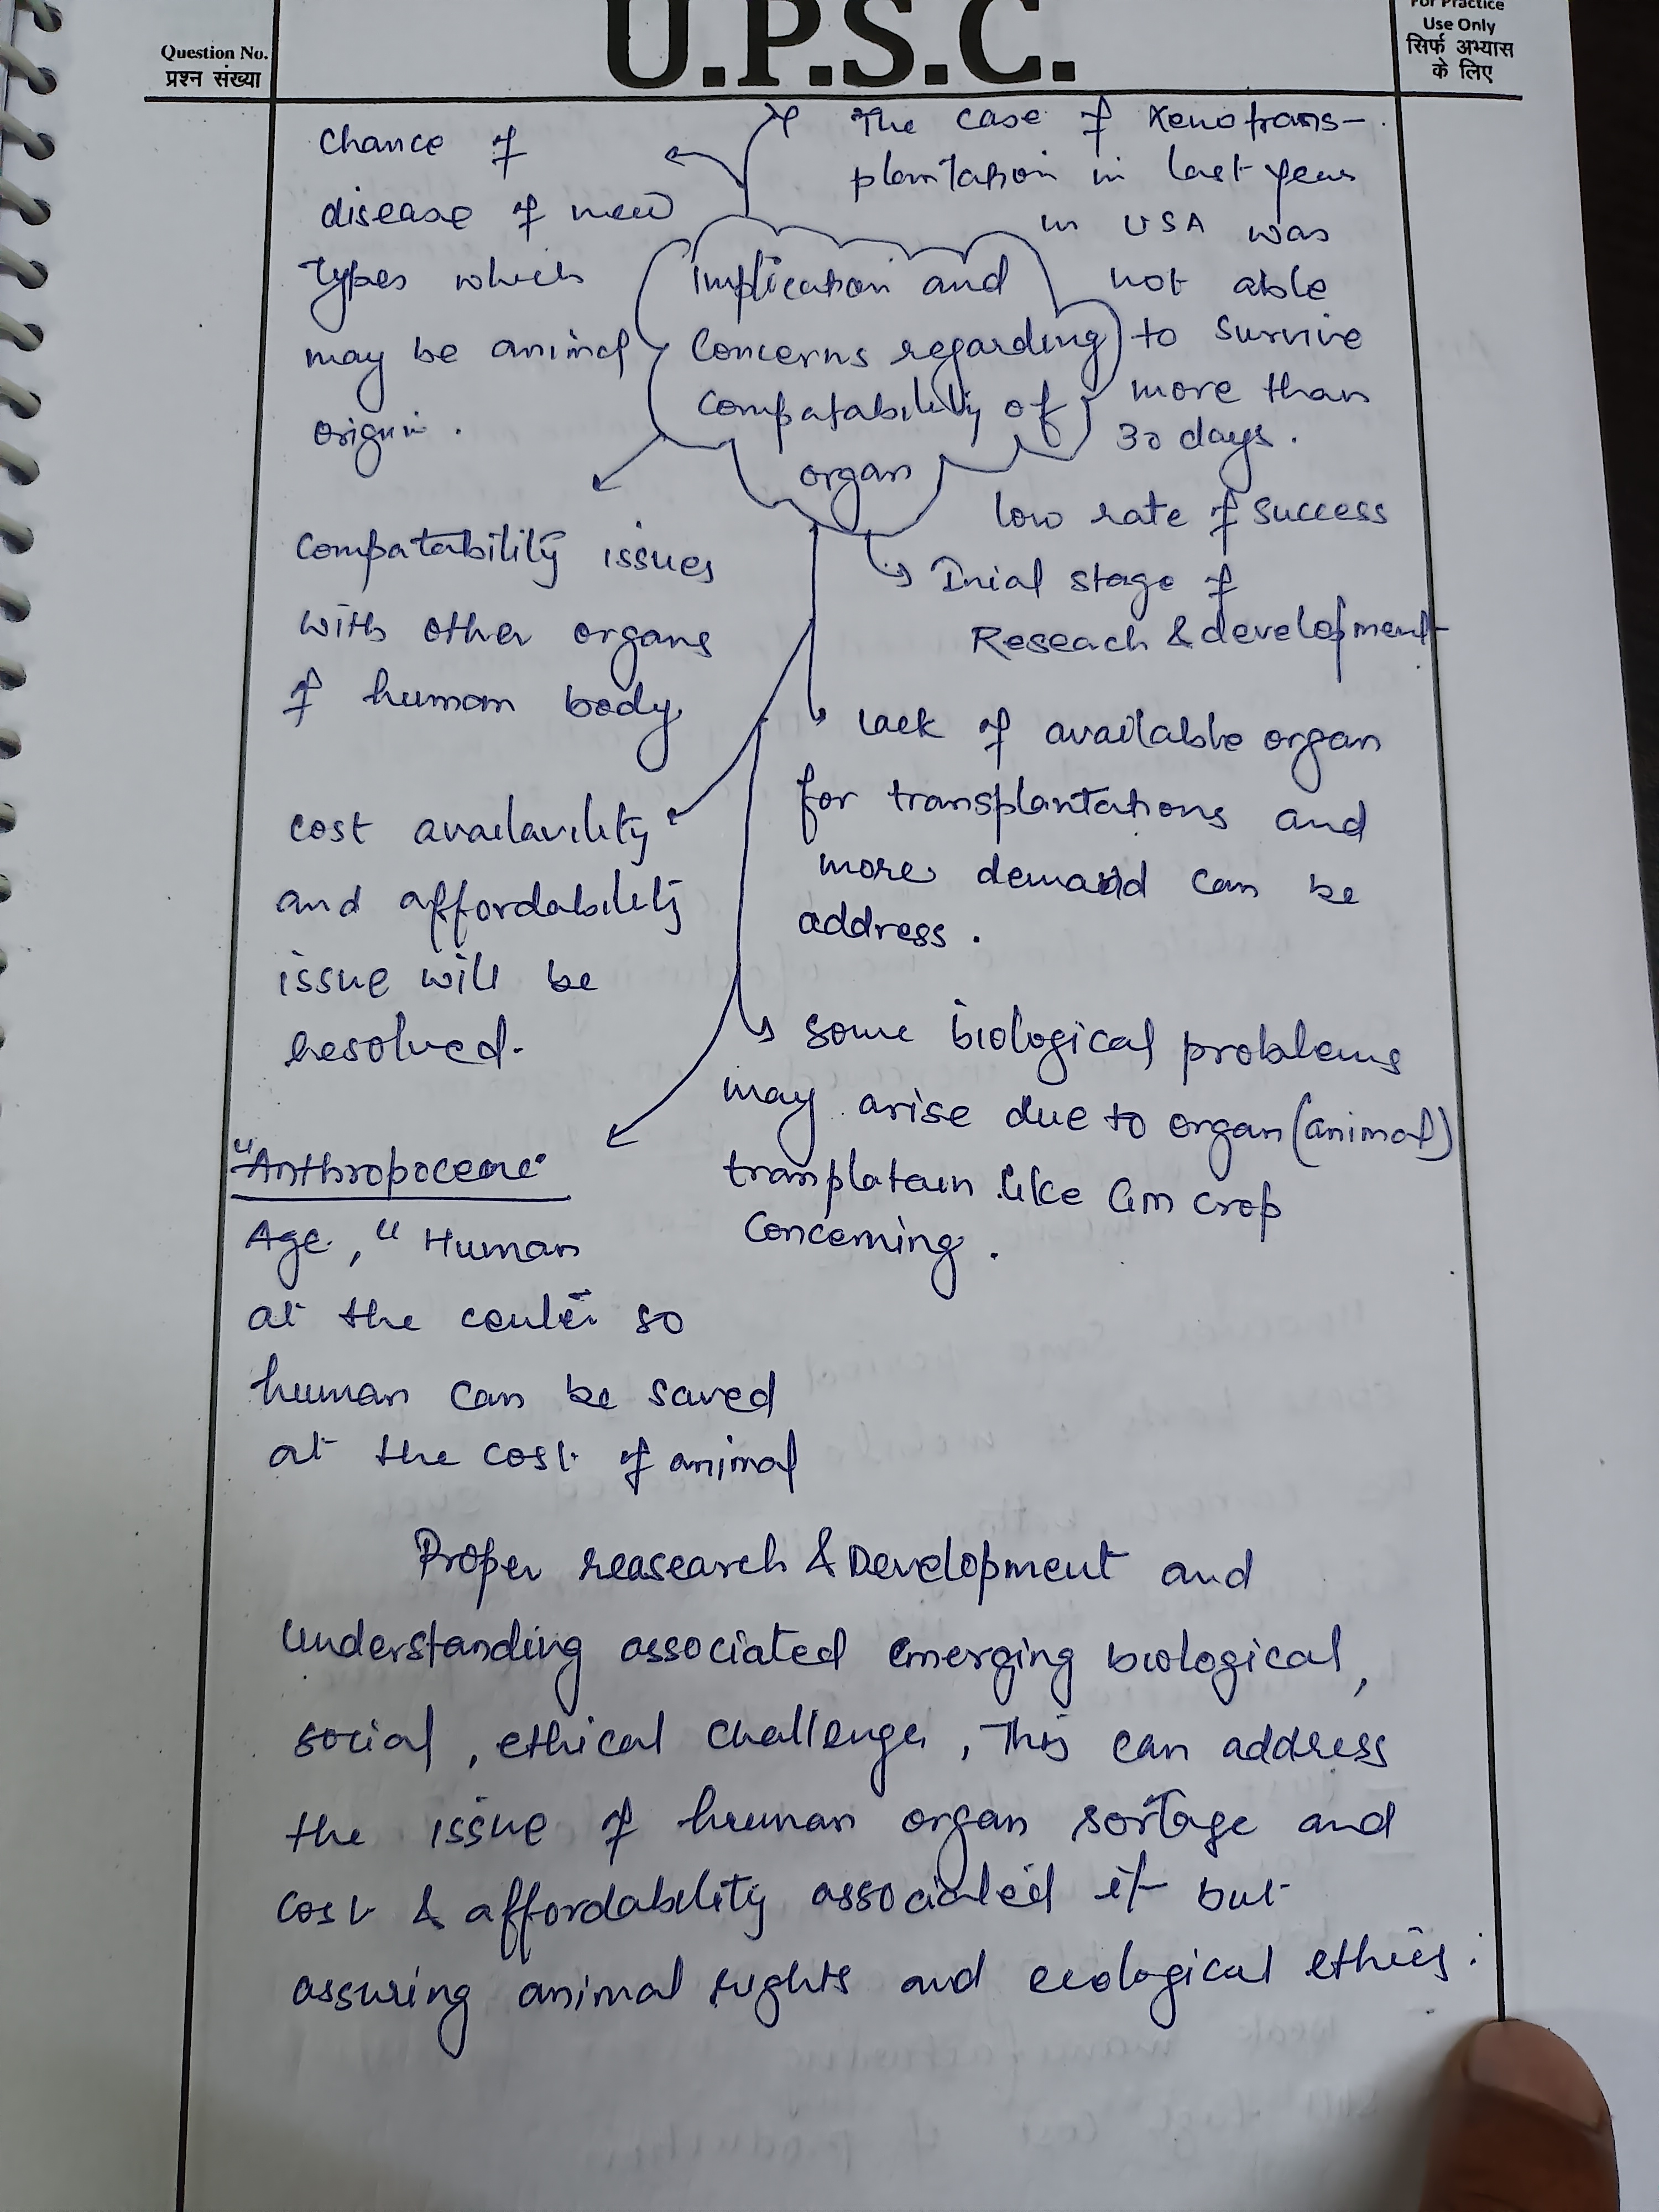 U.P.S.C.
Question No.
प्रश्न संख्या
For Practice
Use Only
सिर्फ अभ्यास
के लिए
Chance of
disease of new
types which
may be animal
origin .
The case of Xenotrans-
plantation in last year
in USA was
not able
to survive
more than
30 days .
Implication and
Concerns regarding
Compatability of
organ
low rate of success
Inial stage of
Reseach & development
Compatability issues
with other organs
of human body
lack of available organ
for transplantations and
more demand can be
address .
cost availavility
and affordability
issue will be
resolved.
some biological problems
may arise due to organ (animal)
like Gm crop
Concerning .
"Anthropocene"
Age, " Human
at the center so
human can be saved
at the cost of animal
Proper reasearch & Development and
Understanding associated emerging biological,
social , ethical challenges , This can address
the issue of human organ sortage and
cost & affordability associated it but
assuring animal rights and ecological ethics .